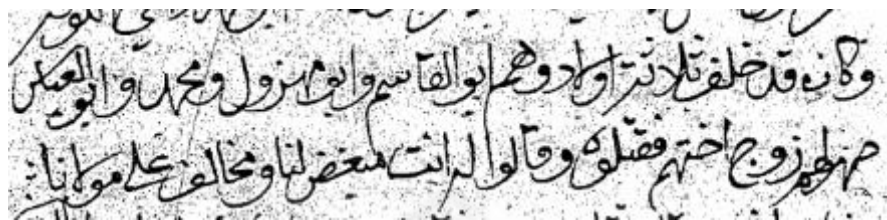 وكان قد خلف ثلاثة اولاد وهم ابو القاسم وابو مهزول ومحمد وابو العباس
صهرهم زوج اختهم فقتلوه وقالوا له انت مبغض لنا ومخالف على مولانا